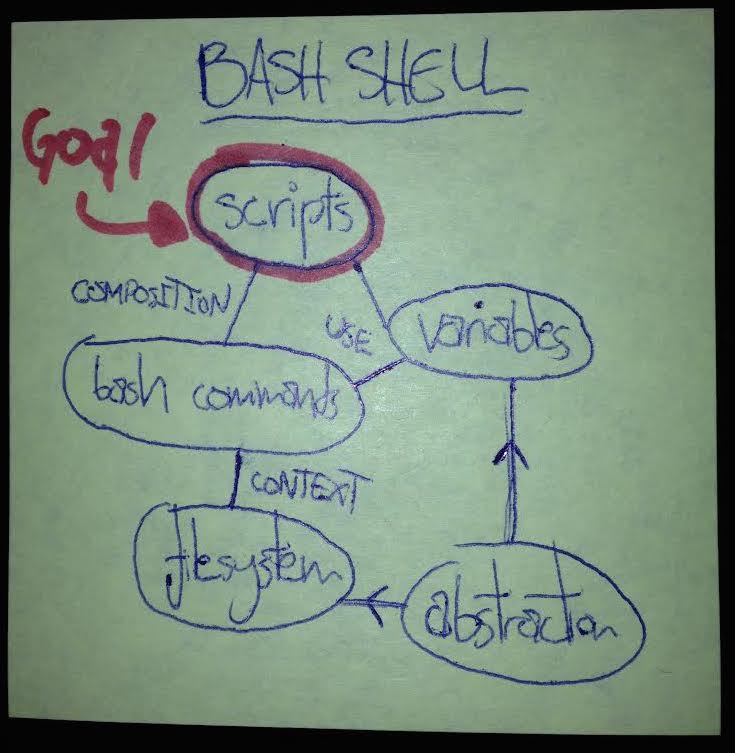 BASH SHELL
Goal
scripts
COMPOSITION
USE
variables
bash commands
CONTEXT
filesystem
abstraction